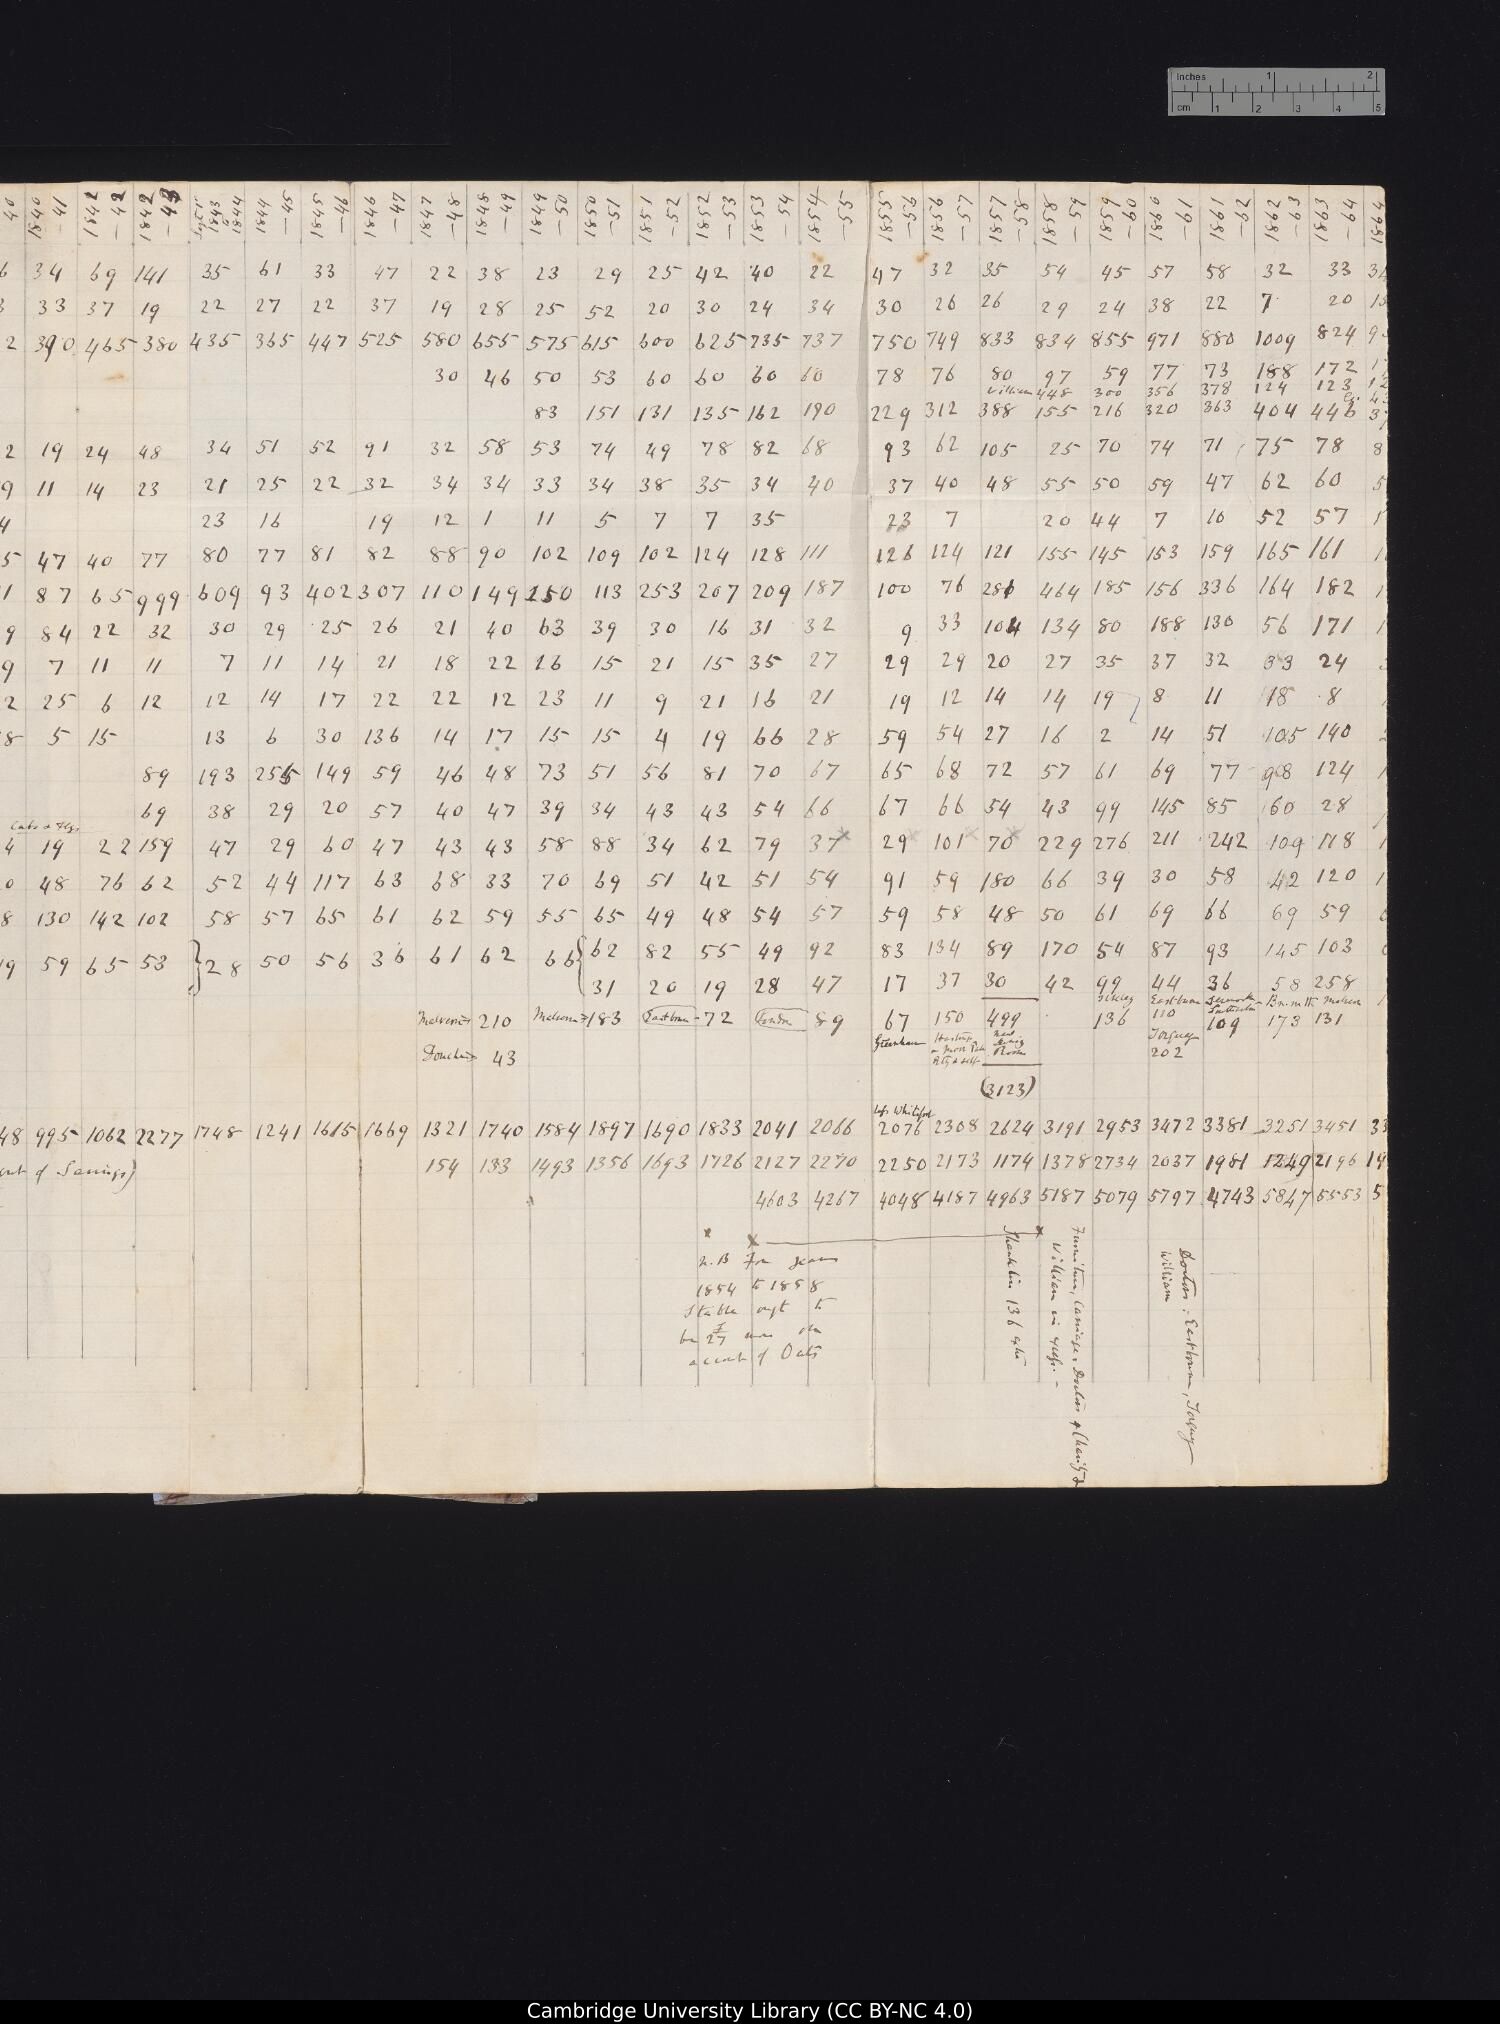 40 1840 – 41 1841 – 42 1842 – 43 1843 to 1844 1844 – 45 1845 – 46 1846 – 47 1847 – 48 1848 – 49 1849 – 50 1850 – 51 1851 – 52 1852 – 53 1853 – 54 1854 – 55 1855 – 56 1856 – 57 1857 – 58 1858 – 59 1859 – 60 1860 – 61 1861 – 62 1862 – 63 1863 – 64 1864
6 34 69 141 35 61 33 47 22 38 23 29 25 42 40 22 47 32 35 54 45 57 58 32 33 34
3 33 37 19 22 27 22 37 19 28 25 52 20 30 24 34 30 26 26 29 24 38 22 7 20 15
2 390 465 380 435 365 447 525 580 655 575 615 600 625 735 737 750 749 833 834 855 971 880 1009 824 9
30 46 50 53 60 60 60 60 78 76 80 97 59 77 73 188 172 1
William 448 300 356 378 124 123 12
83 151 131 135 162 190 229 312 388 155 216 320 363 404 446 3
2 19 24 48 34 51 52 91 32 58 53 74 49 78 82 68 93 62 105 25 70 74 71 75 78 8
9 11 14 23 21 25 22 32 34 34 33 34 38 35 34 40 37 40 48 55 50 59 47 62 60 5
4 23 16 19 12 1 11 5 7 7 35 23 7 20 44 7 16 52 57 1
5 47 40 77 80 77 81 82 88 90 102 109 102 124 128 111 126 124 121 155 145 153 159 165 161 1
1 87 65 999 609 93 402 307 110 149 250 113 253 207 209 187 100 76 281 464 185 156 336 164 182 1
9 84 22 32 30 29 25 26 21 40 63 39 30 16 31 32 9 33 104 134 80 188 130 56 171 1
9 7 11 11 7 11 14 21 18 22 26 15 21 15 35 27 29 29 20 27 35 37 32 33 24
2 25 6 12 12 14 17 22 22 12 23 11 9 21 16 21 19 12 14 14 19 8 11 18 8
8 5 15 13 6 30 136 14 17 15 15 4 19 66 28 59 54 27 16 2 14 51 105 140
89 193 255 149 59 46 48 73 51 56 81 70 67 65 68 72 57 61 69 77 98 124 1
69 38 29 20 57 40 47 39 34 43 43 54 66 67 66 54 43 99 145 85 60 28
4 19 22 159 47 29 60 47 43 43 58 88 34 62 79 37 x 29 x 101 x 70 x 229 276 211 242 109 118 1
0 48 76 62 52 44 117 63 68 33 70 69 51 42 51 54 91 59 180 66 39 30 58 42 120 1
8 130 142 102 58 57 65 61 62 59 55 65 49 48 54 57 59 58 48 50 61 69 66 69 59
19 59 65 53 } 28 50 56 36 61 62 66 { 62 82 55 49 92 83 134 89 170 54 87 93 145 103
31 20 19 28 47 17 37 30 42 99 44 36 58 258
Malvern 210 Malvern 183 Eastbourne 72 London 89 67 150 499 Ilkley 136 Eastbourne 110 109 173 Malvern 131
Douche 43 Torquay 202
(3123)
48 995 1062 2277 1748 1241 1615 1669 1321 1740 1584 1897 1690 1833 2041 2066 2076 2308 2624 3191 2953 3472 3381 3251 3451 33
of Savings) 154 133 1493 1356 1693 1726 2127 2270 2250 2173 1174 1378 2734 2037 1981 1249 2196 19
4603 4267 4048 4187 4963 5187 5079 5797 4743 5847 5553 5
N.B For years
1854 to 1858
Stable ought to
be £27 more on
account of Oats
Shanklin 136 extra
Furniture, Carriage, Doctors & Charity &
William in excess. –
Doctors: Eastbourne, Torquay
William
Inches 1 2
cm 1 2 3 4 5
Cambridge University Library (CC BY-NC 4.0)